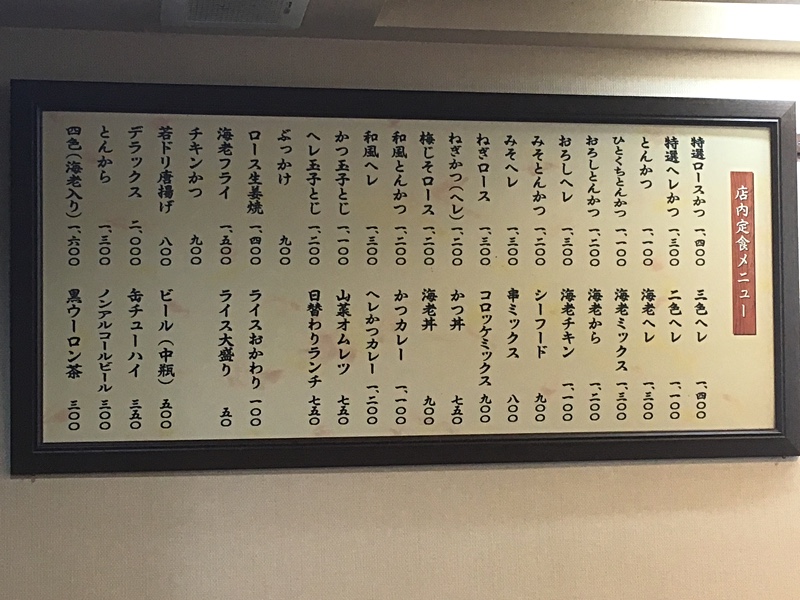 店内定食メニュー
特選ロースかつ 一、四〇〇
特選ヘレかつ 一、三〇〇
とんかつ 一、一〇〇
ひとくちとんかつ 一、一〇〇
おろしとんかつ 一、二〇〇
おろしヘレ 一、三〇〇
みそとんかつ 一、二〇〇
みそヘレ 一、三〇〇
ねぎロース 一、三〇〇
ねぎかつ(ヘレ) 一、二〇〇
梅じそロース 一、二〇〇
和風とんかつ 一、二〇〇
和風ヘレ 一、三〇〇
かつ玉子とじ 一、一〇〇
ヘレ玉子とじ 一、二〇〇
ぶっかけ 九〇〇
ロース生姜焼 一、四〇〇
海老フライ 一、五〇〇
チキンかつ 九〇〇
若ドリ唐揚げ 八〇〇
デラックス 二、〇〇〇
とんから 一、三〇〇
四色(海老入り) 一、六〇〇
三色ヘレ 一、四〇〇
二色ヘレ 一、一〇〇
海老ヘレ 一、三〇〇
海老ミックス 一、三〇〇
海老から 一、二〇〇
海老チキン 一、一〇〇
シーフード 九〇〇
串ミックス 八〇〇
コロッケミックス 九〇〇
かつ丼 七五〇
海老丼 九〇〇
かつカレー 一、一〇〇
ヘレかつカレー 一、二〇〇
山菜オムレツ 七五〇
日替わりランチ 七五〇
ライスおかわり 一〇〇
ライス大盛り 五〇
ビール(中瓶) 五〇〇
缶チューハイ 三五〇
ノンアルコールビール 三〇〇
黒ウーロン茶 三〇〇